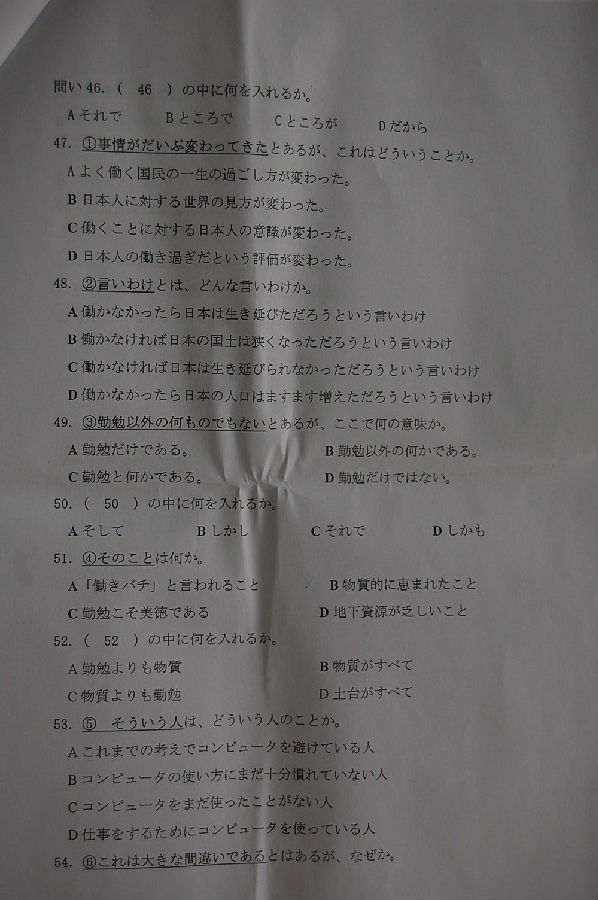 問い 46. ( 46 ) の中に何を入れるか。
A それで B ところで C ところが D だから
47. ①事情がだいぶ変わってきたとあるが、これはどういうことか。
A よく働く国民の一生の過ごし方が変わった。
B 日本人に対する世界の見方が変わった。
C 働くことに対する日本人の意識が変わった。
D 日本人の働き過ぎだという評価が変わった。
48. ②言いわけとは、どんな言いわけか。
A 働かなかったら日本は生き延びただろうという言いわけ
B 働かなければ日本の国土は狭くなっただろうという言いわけ
C 働かなければ日本は生き延びられなかっただろうという言いわけ
D 働かなかったら日本の人口はますます増えただろうという言いわけ
49. ③勤勉以外の何ものでもないとあるが、ここで何の意味か。
A 勤勉だけである。 B 勤勉以外の何かである。
C 勤勉と何かである。 D 勤勉だけではない。
50. ( 50 ) の中に何を入れるか。
A そして B しかし C それで D しかも
51. ④そのことは何か。
A 「働きバチ」と言われること B 物質的に恵まれたこと
C 勤勉こそ美徳である D 地下資源が乏しいこと
52. ( 52 ) の中に何を入れるか。
A 勤勉よりも物質 B 物質がすべて
C 物質よりも勤勉 D 土台がすべて
53. ⑤ そういう人は、どういう人のことか。
A これまでの考えでコンピュータを避けている人
B コンピュータの使い方にまだ十分慣れていない人
C コンピュータをまだ使ったことがない人
D 仕事をするためにコンピュータを使っている人
54. ⑥これは大きな間違いであるとはあるが、なぜか。